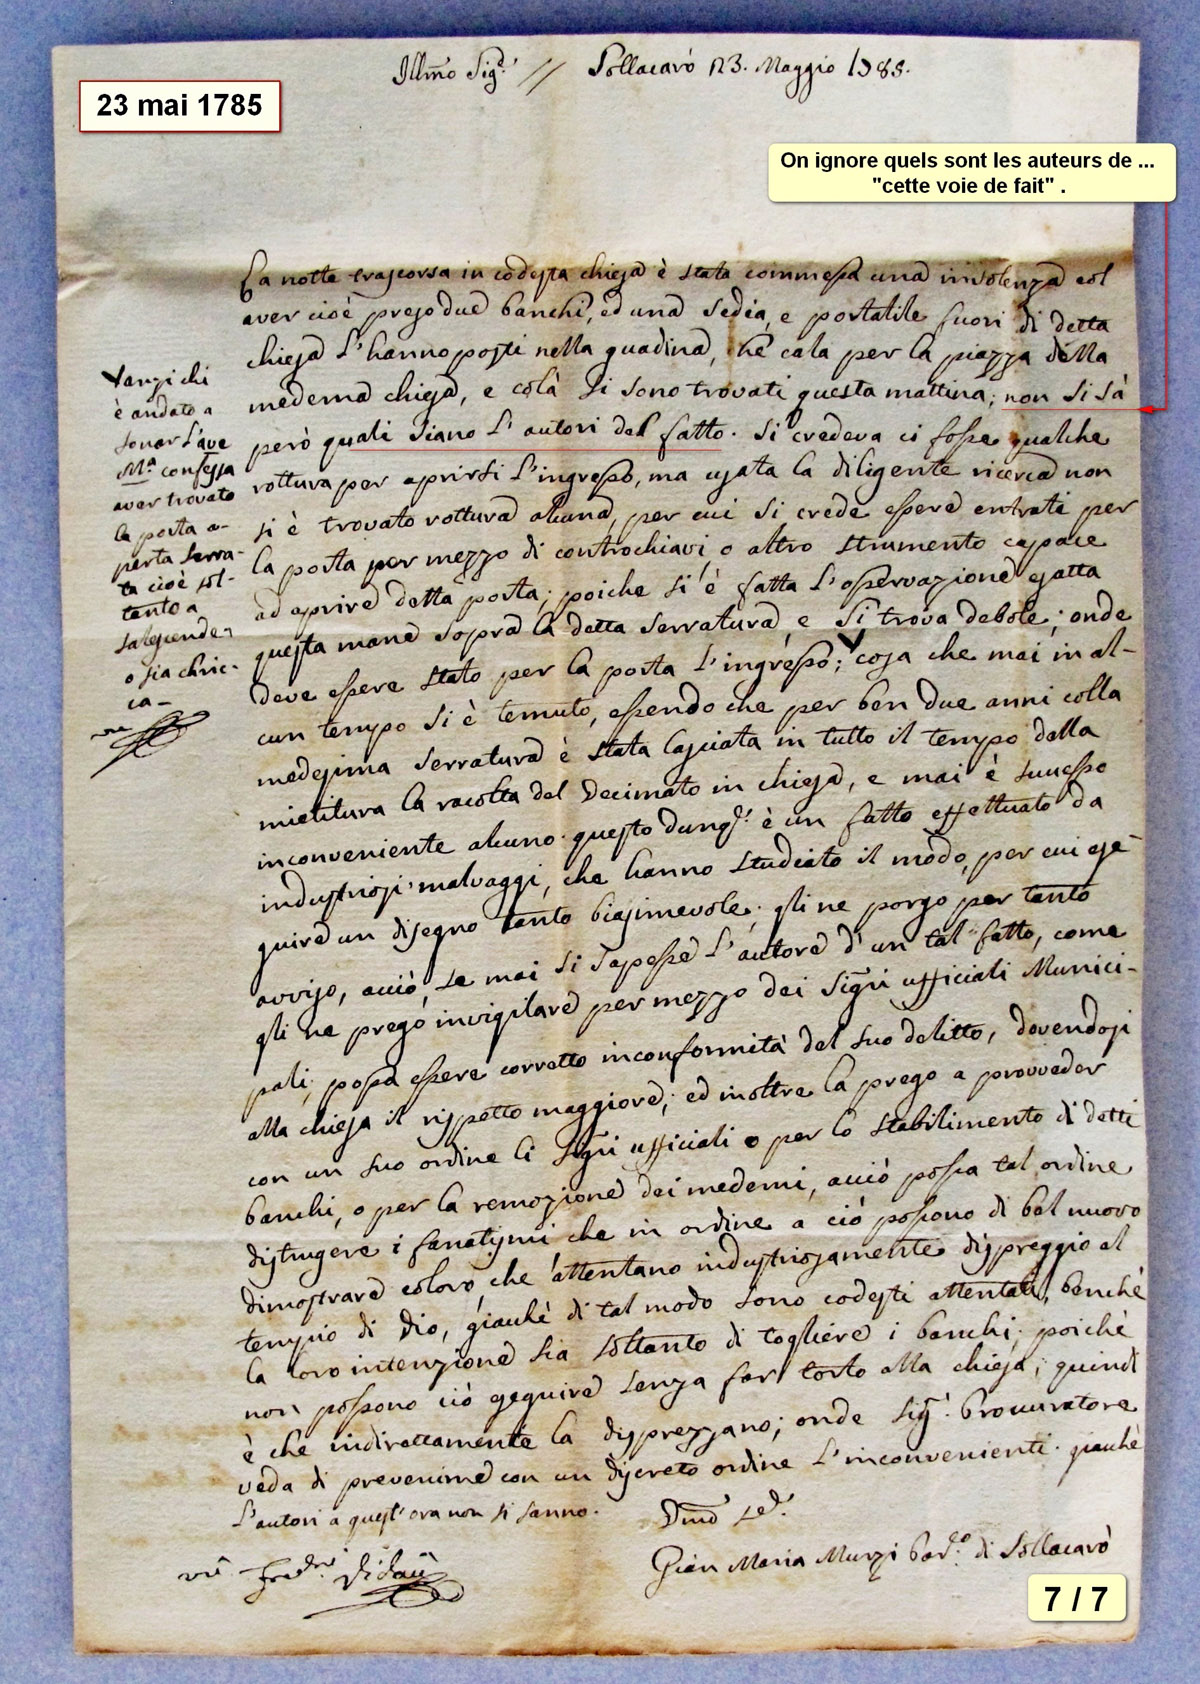 Illmo Sigr. // Sollacarò 23. Maggio 1785.
23 mai 1785
On ignore quels sont les auteurs de ...
"cette voie de fait" .
La notte trascorsa in codesta chiesa è stata commessa una insolenza col
aver cioè preso due banchi, ed una sedia, e portatile fuori di detta
chiesa l'hanno posti nella quadina, che cala per la piazza della
medema chiesa, e colà si sono trovati questa mattina; non si sà
però quali siano l'autori del fatto. Si credeva ci fosse qualche
rottura per aprirsi l'ingresso, ma usata la diligente ricerca non
si è trovato rottura alcuna, per cui si crede essere entrati per
la posta per mezzo di controchiavi o altro strumento capace
ad aprire detta posta; poiche si è fatta l'osservazione esatta
questa mane sopra la detta serratura, e si trova debole; onde
deve essere stato per la posta l'ingresso; cosa che mai in al-
cun tempo si è temuto, essendo che per ben due anni colla
medesima serratura è stata lasciata in tutto il tempo della
mietitura la racolta del Decimato in chiesa, e mai è successo
inconveniente alcuno. questo dunqe. è un fatto effettuato da
industriosi malvaggi, che hanno studiato il modo, per cui ese-
guire un disegno tanto biasimevole; gli ne porgo per tanto
avviso, acciò, se mai si sapesse l'autore d'un tal fatto, come
gli ne prego invigilare per mezzo dei Signri ufficiali Munici-
pali, possa essere corretto in conformità del suo delitto, dovendosi
alla chiesa il rispetto maggiore; ed inoltre la prego a provveder
con un suo ordine li Signri ufficiali o per lo stabilimento di detti
banchi, o per la remozione dei medemi, acciò possa tal ordine
distrugere i fanatismi che in ordine a ciò possono di bel nuovo
dimostrare coloro, che attentano industriosamente dispreggio al
tempio di Dio, giacchè di tal modo sono codesti attentati, benchè
la loro intenzione sia soltanto di togliere i banchi; poichè
non possono ciò eseguire senza far torto alla chiesa; quindi
è che indirettamente la disprezzano; onde Sigr. Procuratore
veda di prevenirne con un discreto ordine l'inconvenienti. giacchè
l'autori a quest'ora non si sanno.
Gian Maria Murzi di Sollacarò
Vanzi chi
è andato a
sonar l'ave
Ma confessa
aver trovato
la posta a-
perta serra-
ta cioè sol-
tanto a
o sia chric-
ca-
7 / 7